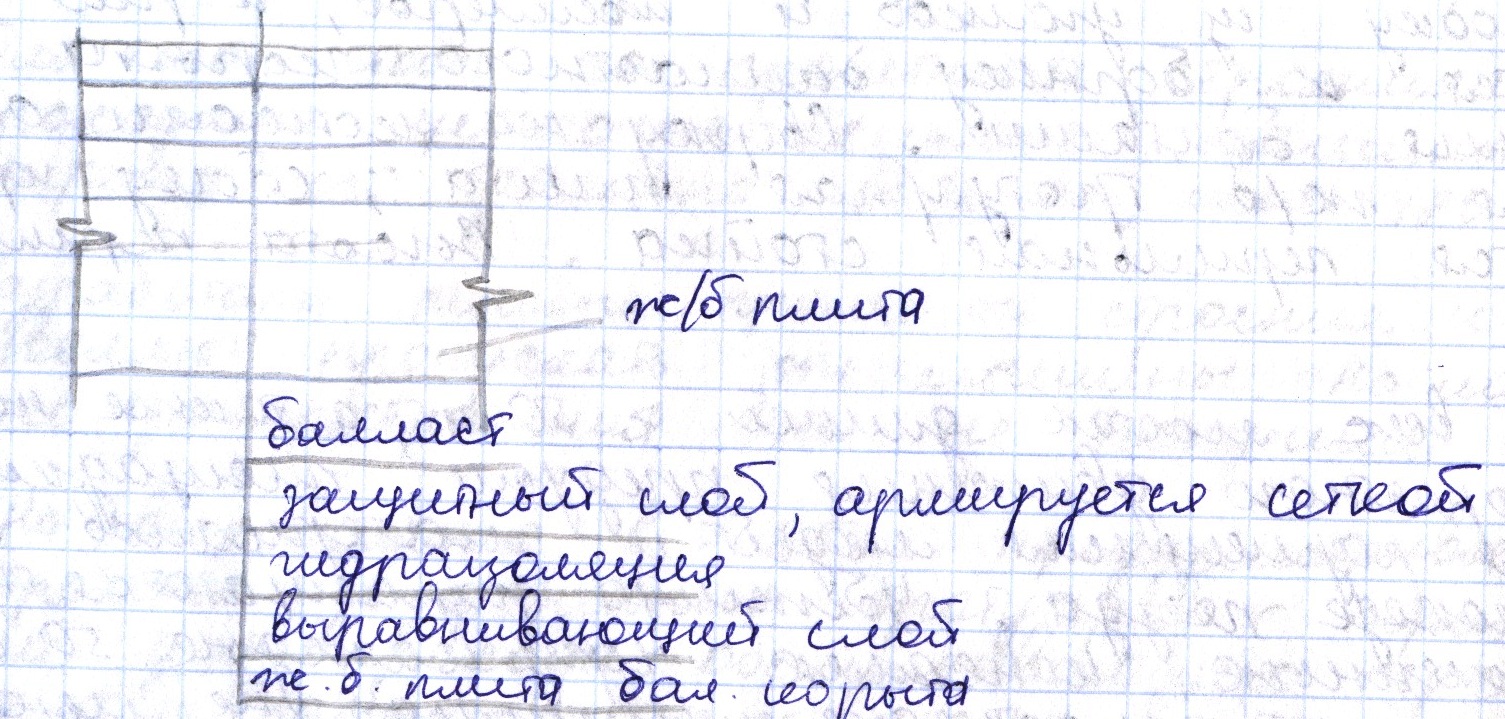 ж/б плита
балласт
защитный слой, армируется сеткой
гидроизоляция
выравнивающий слой
ж.б. плита бал. корыта